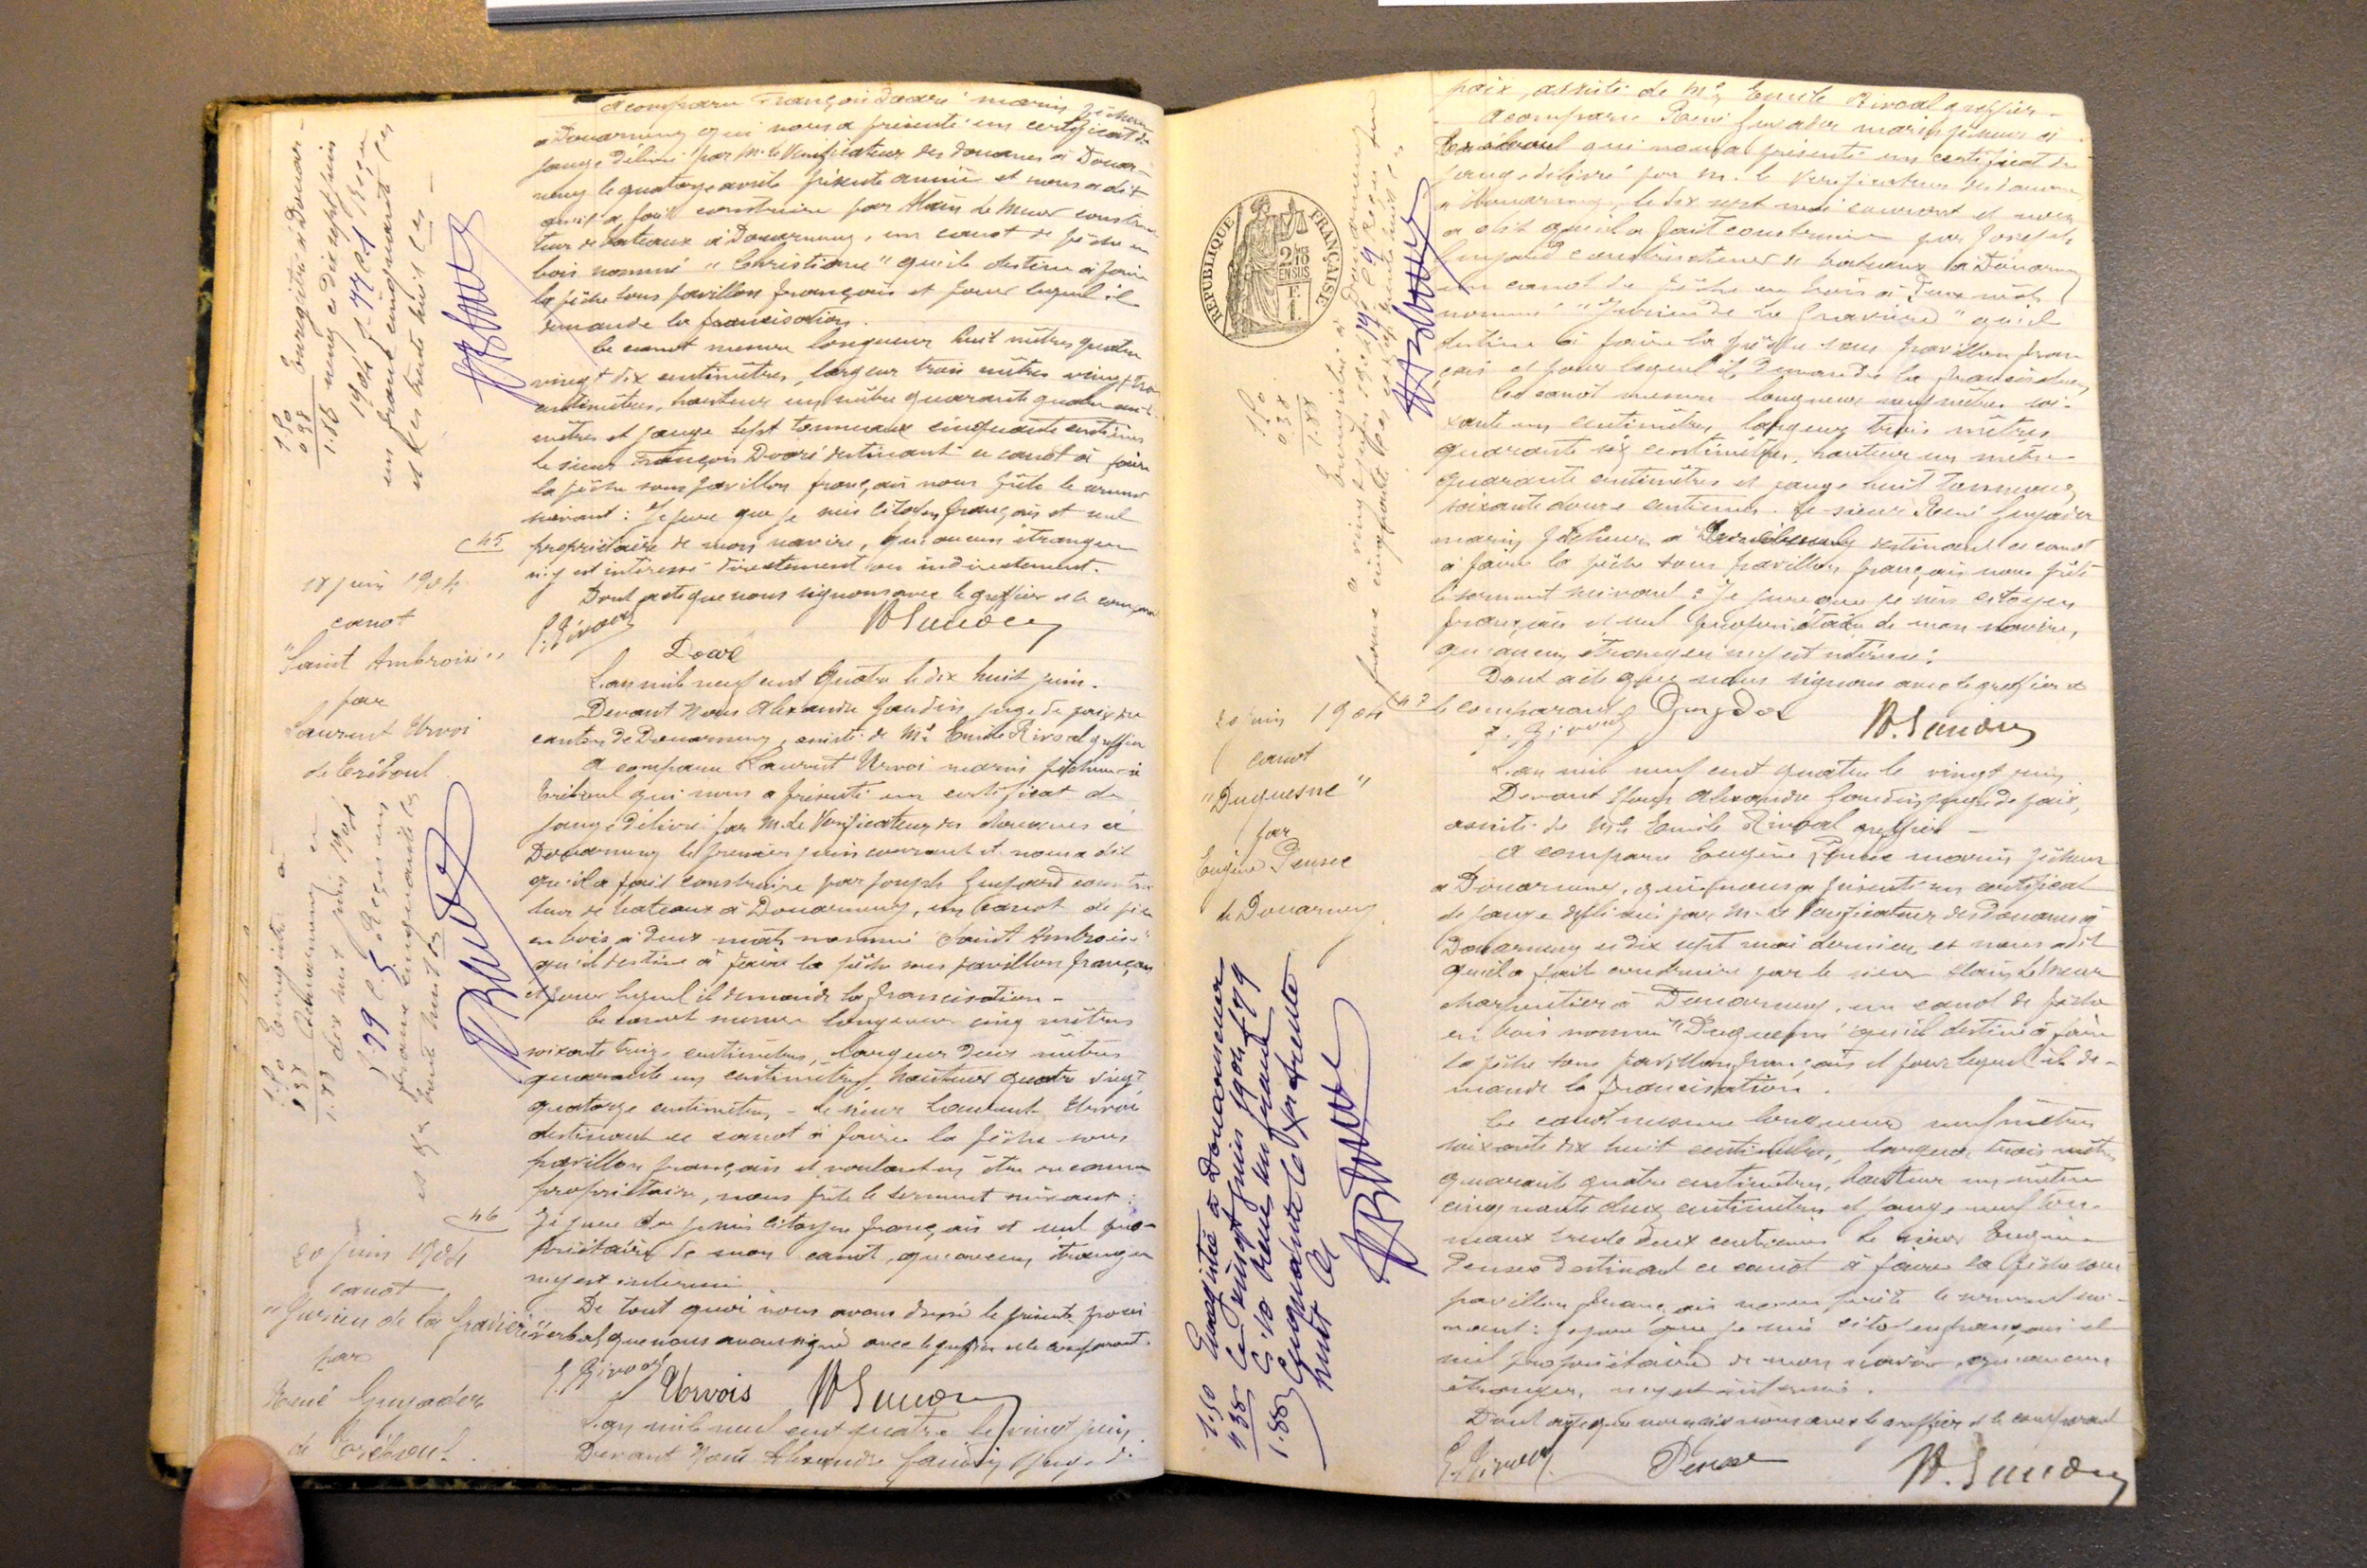 a comparu François Doaré marin pêcheur
à Douarnenez qui nous a présenté un certificat de
jauge délivré par M. le Vérificateur des douanes à Douar-
nenez le quatorze avril présente année et nous a dit
qu'il a fait construire par Alain Le Meur construc
teur de bateaux à Douarnenez, un canot de pêche en
bois nommé "Christiane" qu'il destine à faire
la pêche sous pavillon français et pour lequel il
demande la francisation.
Ce canot mesure longueur huit mètres quatre
vingt dix centimètres, largeur trois mètres vingt
centimètres, hauteur un mètre quarante quatre centi-
mètres et jauge sept tonneaux cinquante centièmes
Le sieur François Doaré destinant ce canot à faire
la pêche sous pavillon français nous prête le serment
suivant : Je jure que je suis citoyen français et seul
propriétaire de mon navire, qu'aucun étranger
n'y est intéressé directement ou indirectement.
Dont acte que nous signons avec le greffier et le compa
E. Rivoal
Doaré
45
18 juin 1904
canot
"Saint Ambroise"
par
Laurent Urvoi
de Tréboul
L'an mil neuf cent quatre le dix huit juin.
Devant Nous Alexandre Gaudin juge de paix du
canton de Douarnenez, assisté de Me Emile Rivoal greffier
A comparu Laurent Urvoi marin pêcheur à
Tréboul qui nous a présenté un certificat de
jauge délivré par M. le Vérificateur des douanes à
Douarnenez le premier juin courant et nous a dit
qu'il a fait construire par Joseph construc
teur de bateaux à Douarnenez, un canot de pêche
en bois à deux mâts nommé "Saint Ambroise"
qu'il destine à faire la pêche sous pavillon français
et pour lequel il demande la francisation -
Ce canot mesure longueur cinq mètres
soixante treize centimètres, largeur deux mètres
quarante un centimètres, hauteur quatre vingt
quatorze centimètres, - Le sieur Laurent Urvoi
destinant ce canot à faire la pêche sous
pavillon français et voulant en être reconnu
propriétaire, nous prête le serment suivant :
Je jure que je suis citoyen français et seul pro-
priétaire de mon canot, qu'aucun étranger
n'y est intéressé
De tout quoi nous avons dressé le présent procès
verbal que nous avons signé avec le greffier et le comparant.
E. Rivoal Urvois
46
20 juin 1904
canot
"Jurien de la Gravière"
par
René Guyader
de Tréboul.
L'an mil neuf cent quatre le vingt juin
Devant Nous Alexandre Gaudin juge de
Enregistré à Douar-
nenez le dix sept juin
1904
un franc cinquante c
et Xes trente huit ces
1.50
0 38
1.88
Enregistré à
Douarnenez le
dix huit juin 1904
f. 99 c. 5. Reçu un
franc cinquante ces
et Xes trente huit ces
paix, assisté de Me Emile Rivoal greffier -
A comparu René Guyader marin pêcheur à
Tréboul qui nous a présenté un certificat de
jauge délivré par M. le Vérificateur des douanes
à Douarnenez, le dix sept mai courant et nous
a dit qu'il a fait construire par Joseph
constructeur de bateaux à Douarnenez
un canot de pêche en bois à deux mâts
nommé "Jurien de la Gravière" qu'il
destine à faire la pêche sous pavillon fran
çais et pour lequel il demande la francisation
Ce canot mesure longueur neuf mètres soi-
xante un centimètres, largeur trois mètres
quarante six centimètres, hauteur un mètre
quarante centimètres et jauge huit tonneaux
soixante douze centièmes. Le sieur René Guyader
marin pêcheur à Tréboul destinant ce canot
à faire la pêche sous pavillon français nous prête
le serment suivant : Je jure que je suis citoyen
français et seul propriétaire de mon navire,
qu'aucun étranger n'y est intéressé.
Dont acte que nous signons avec le greffier et
le comparant
47
REPUBLIQUE FRANÇAISE
20 juin 1904
canot
"Duquesne"
par
Eugène Pensec
de Douarnenez
L'an mil neuf cent quatre le vingt juin
Devant Nous Alexandre Gaudin juge de paix,
assisté de Me Emile Rivoal greffier -
A comparu Eugène Pensec marin pêcheur
à Douarnenez, qui nous a présenté un certificat
de jauge délivré par M. le Vérificateur des Douanes à
Douarnenez le dix sept mai dernier et nous a dit
qu'il a fait construire par le sieur Alain Le Meur
charpentier à Douarnenez, un canot de pêche
en bois nommé "Duquesne" qu'il destine à faire
la pêche sous pavillon français et pour lequel il de-
mande la francisation.
Ce canot mesure longueur neuf mètres
soixante dix huit centimètres, largeur trois mètres
quarante quatre centimètres, hauteur un mètre
cinquante deux centimètres et jauge neuf ton-
neaux trente deux centièmes Le sieur Eugène
Pensec destinant ce canot à faire la pêche sous
pavillon français nous prête le serment sui-
vant : Je jure que je suis citoyen français et
seul propriétaire de mon navire, qu'aucun
étranger, n'y est intéressé.
Dont acte que nous signons avec le greffier et le comparant
E. Rivoal Pensec
1.50
0 38
1.88
Enregistré à Douarnenez
1.50
0 38
1.88
Enregistré à Douarnenez
le vingt juin 1904 f. 79
c. 10 reçu un franc
cinquante ces Xes trente
huit ces